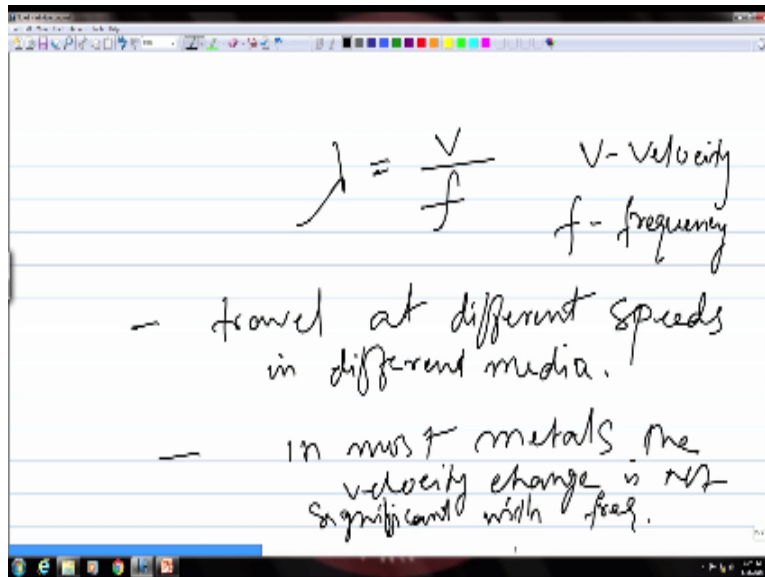 λ = v/f V - Velocity
f - frequency
- travel at different speeds
in different media.
- in most metals the
velocity change is not
significant with freq.